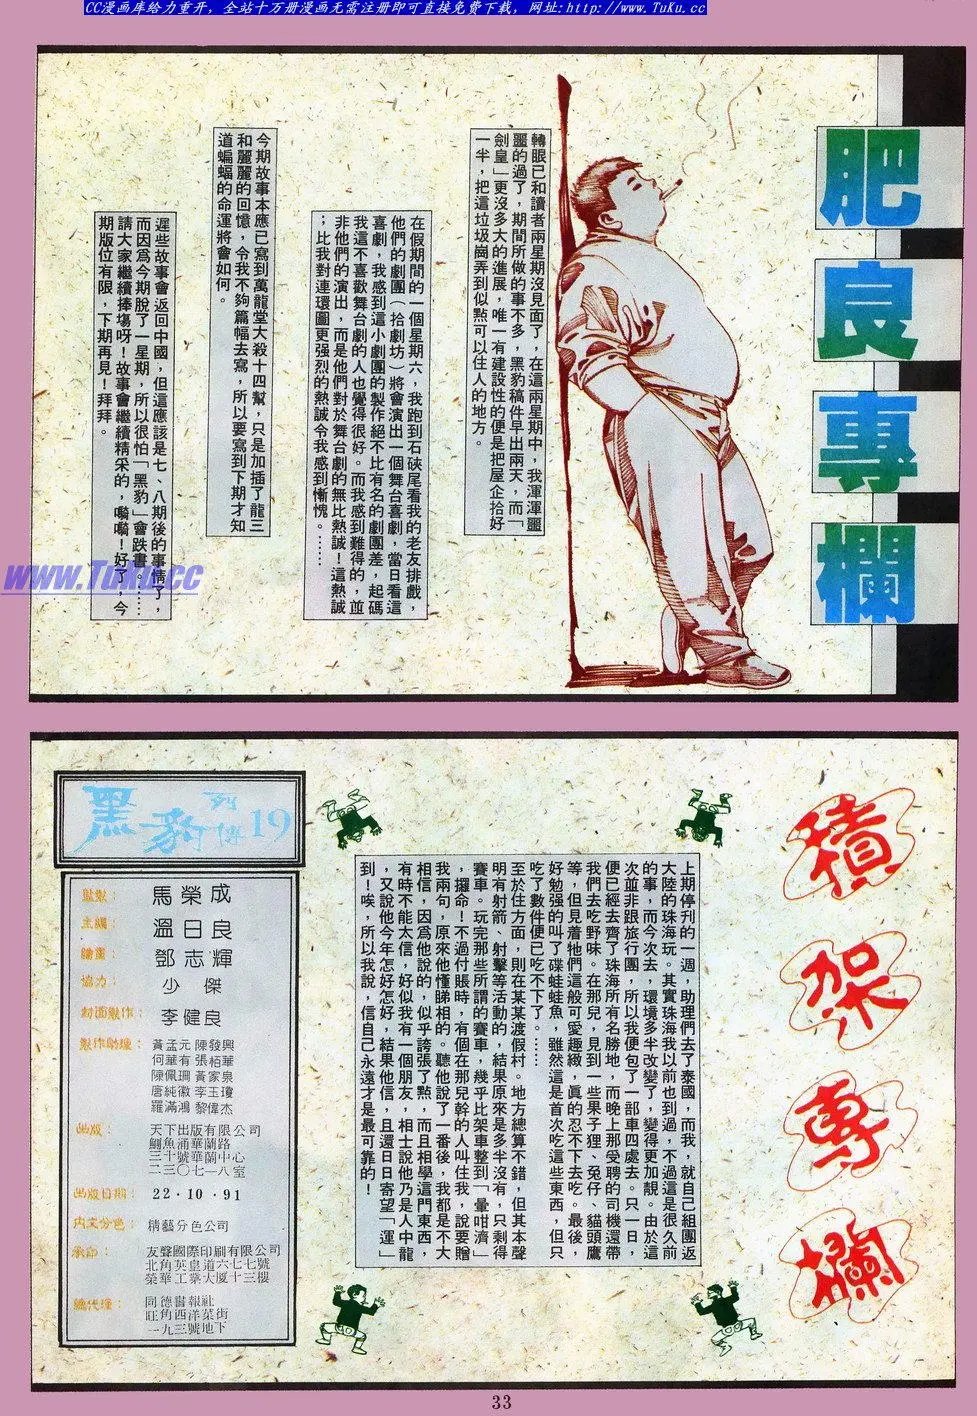 CC漫画库给力重开，全站十万册漫画无需注册即可直接免费下载，网址:http://www.TuKu.cc
肥良專欄
轉眼已和讀者兩星期沒見面了，在這兩星期中，我渾渾噩
噩的過了，期間所做的事不多，黑豹稿件早出兩天，而「
劍皇」更沒多大的進展，唯一有建設性的便是把屋企拾好
一半，把這垃圾崗弄到似㸃可以住人的地方。
在假期間的一個星期六，我跑到石硤尾看我的老友排戲，
他們的劇團（拾劇坊）將會演出一個舞台喜劇，當日看這
喜劇，我感到這小劇團的製作絕不比有名的劇團差，起碼
我這不喜歡舞台劇的人也覺得很好。而我感到難得的，並
非他們的演出，而是他們對於舞台劇的無比熱誠！這熱誠
；比我對連環圖更强烈的熱誠令我感到慚愧。……
今期故事本應已寫到萬龍堂大殺十四幫，只是加插了龍三
和麗麗的回憶，令我不夠篇幅去寫，所以要寫到下期才知
道蝙蝠的命運將會如何。
遲些故事會返回中國，但這應該是七、八期後的事情了，
而因爲今期脫了一星期，所以很怕「黑豹」會跌書……
請大家繼續捧塲呀！故事會繼續精采的，嘴嘴！好了，今
期版位有限，下期再見！拜拜。
www.TuKu.cc
積架專欄
上期停刋的一週，助理們去了泰國，而我，就自己組團返
大陸的珠海玩。其實珠海我以前也到過，不過這是很久前
的事，而今次去，環境多半改變了，變得更加靚。由於這
次並非跟旅行團，所以我便包了一部車四處去。只一日，
便已經去齊了珠海所有名勝地，而晚上那受聘的司機還帶
我們去吃野味。在那兒，見到一些果子狸、兔仔、貓頭鷹
等，但見着牠們這般可愛趣緻，眞的忍不下去吃。最後，
好勉强的叫了碟蛙蛙魚，雖然這是首次吃這些東西，但只
吃了數件便已吃不下了。……
至於住方面，則在某某渡假村。地方總算不錯，但其本聲
明有射箭、射擊等活動的，結果原來是多半沒有，只剩得
賽車。玩完那些所謂的賽車，幾乎比架車整到「暈咁濟」
，攞命！不過付賬時，有個在那兒幹的人叫住我，說要贈
我兩句，原來他懂睇相的。聽他說了一番後，我都是不大
相信，因爲他說的，似乎誇張了㸃，而且相學這門東西，
有時不能太信，好似我有一個朋友，相士說他乃是人中龍
，又說他今年怎好怎好，結果他信，且還日日寄望「運」
到！唉，所以我說，信自己永遠才是最可靠的！
黑豹列傳19
監製：馬榮成
主編：溫日良
繪畫：鄧志輝
協力：少傑
封面製作：李健良
製作助理：黃孟元 陳發興
何華有 張栢華
陳佩珊 黃家泉
唐純徽 李玉瓊
羅滿鴻 黎偉杰
出版：天下出版有限公司
鰂魚涌華蘭路
三十號華蘭中心
二三〇七一八室
出版日期：22·10·91
內文分色：精藝分色公司
承印：友聲國際印刷有限公司
北角英皇道六七七號
榮華工業大厦十三樓
總代理：同德書報社
旺角西洋菜街
一九三號地下
33